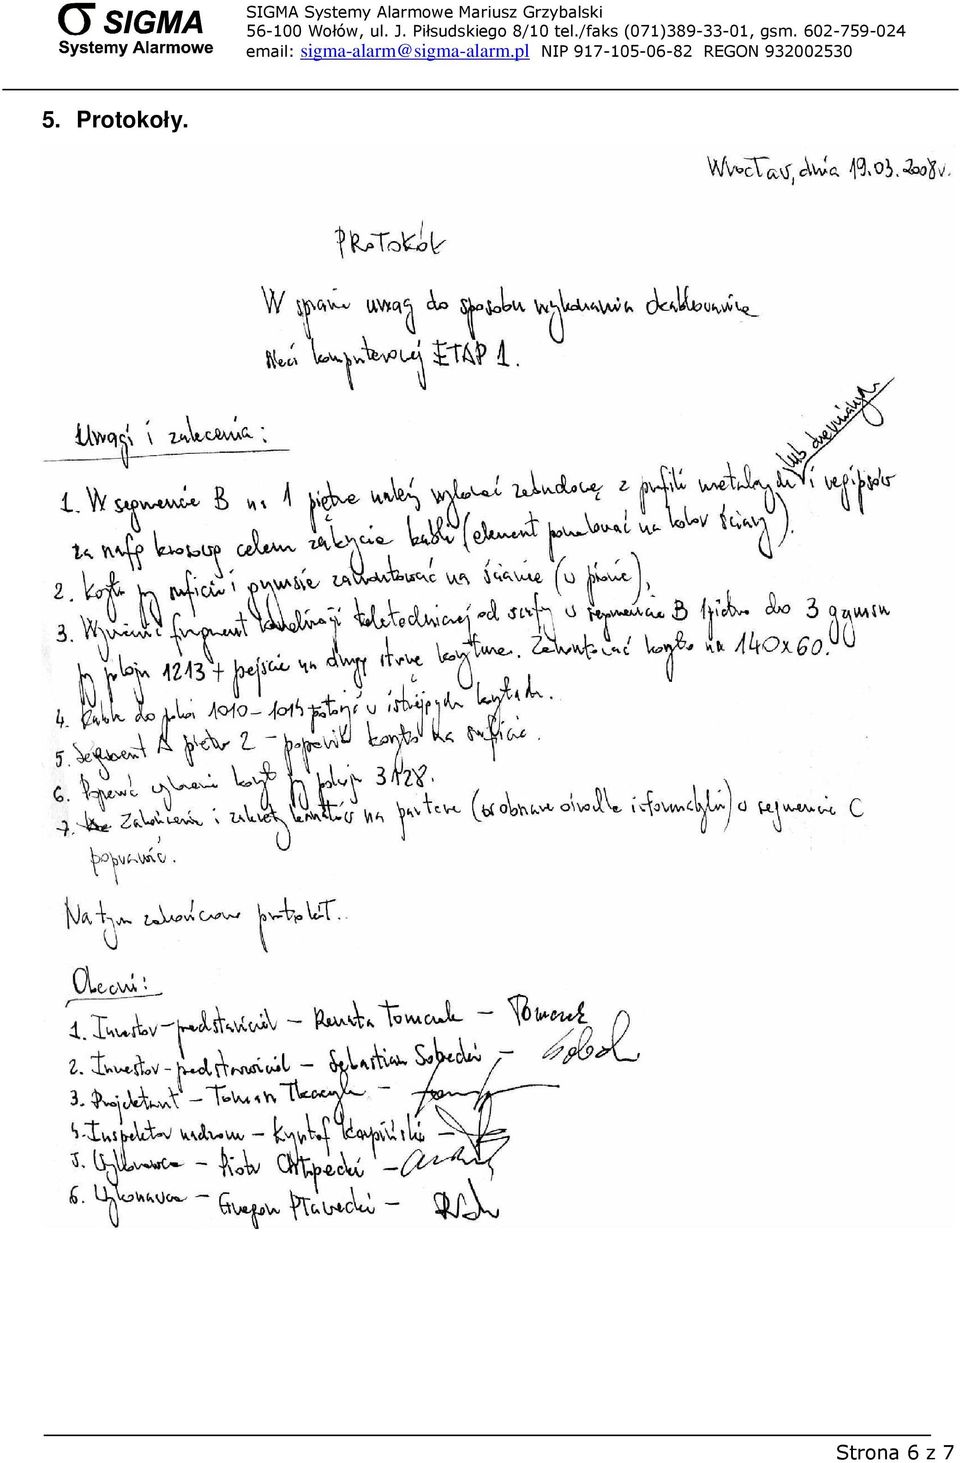 SIGMA
Systemy Alarmowe
SIGMA Systemy Alarmowe Mariusz Grzybalski
56-100 Wołów, ul. J. Piłsudskiego 8/10 tel./faks (071)389-33-01, gsm. 602-759-024
email: sigma-alarm@sigma-alarm.pl NIP 917-105-06-82 REGON 932002530
5. Protokoły.
Wrocław, dnia 19.03.2008r.
PRoTokół
W sprawie uwag do sposobu wykonania okablowania
sieci komputerowej ETAP 1.
Uwagi i zalecenia:
lub drewnianych
1. W segmencie B na 1 piętrze należy wykonać zabudowę z profili metalowych i regipsów
za szafą krosową celem zakrycia kabli (element pomalować na kolor ściany).
2. Koryta przy suficie i gzymsie zamontować na ścianie (w pionie).
3. Wymienić fragment kanalizacji teletechnicznej od szafy w segmencie B 1 piętro do 3 gzymsu
przy pokoju 1213 + przejście na drugą stronę korytarza. Zamontować koryto na 140x60.
4. Kable do pokoi 1010-1014 położyć w istniejących korytach.
5. Segment A piętro 2 - poprawić koryto na suficie.
6. Poprawić wykonanie koryt przy pokoju 3128.
7. Zakończenia i zakręty kanałów na parterze ( ośrodka ) w segmencie C
poprawić.
Na tym zakończono protokół.
Obecni:
1. Inwestor - przedstawiciel - Renata Tomczak - Tomczak
2. Inwestor - przedstawiciel - Sebastian Sobecki -
3. Projektant - Tomasz Tkaczyk -
4. Inspektor nadzoru - Krzysztof Karpiński -
5. Wykonawca - Piotr -
6. Wykonawca - Grzegorz Pławecki -
Strona 6 z 7